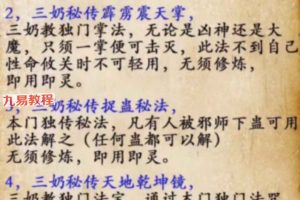 2，三奶秘传霹雳震天掌，
三奶教独门掌法，无论是凶神还是大
魔，只须一掌便可击灭，此法不到自己
性命攸关时不可轻用，无须修炼，
即用即灵。
3，三奶秘传捉蛊秘法，
本门独传秘法，凡有人被邪师下蛊可用
此法解之（任何蛊都可以解）
无须修炼，即用即灵。
4，三奶秘传天地乾坤镜，
九易教程